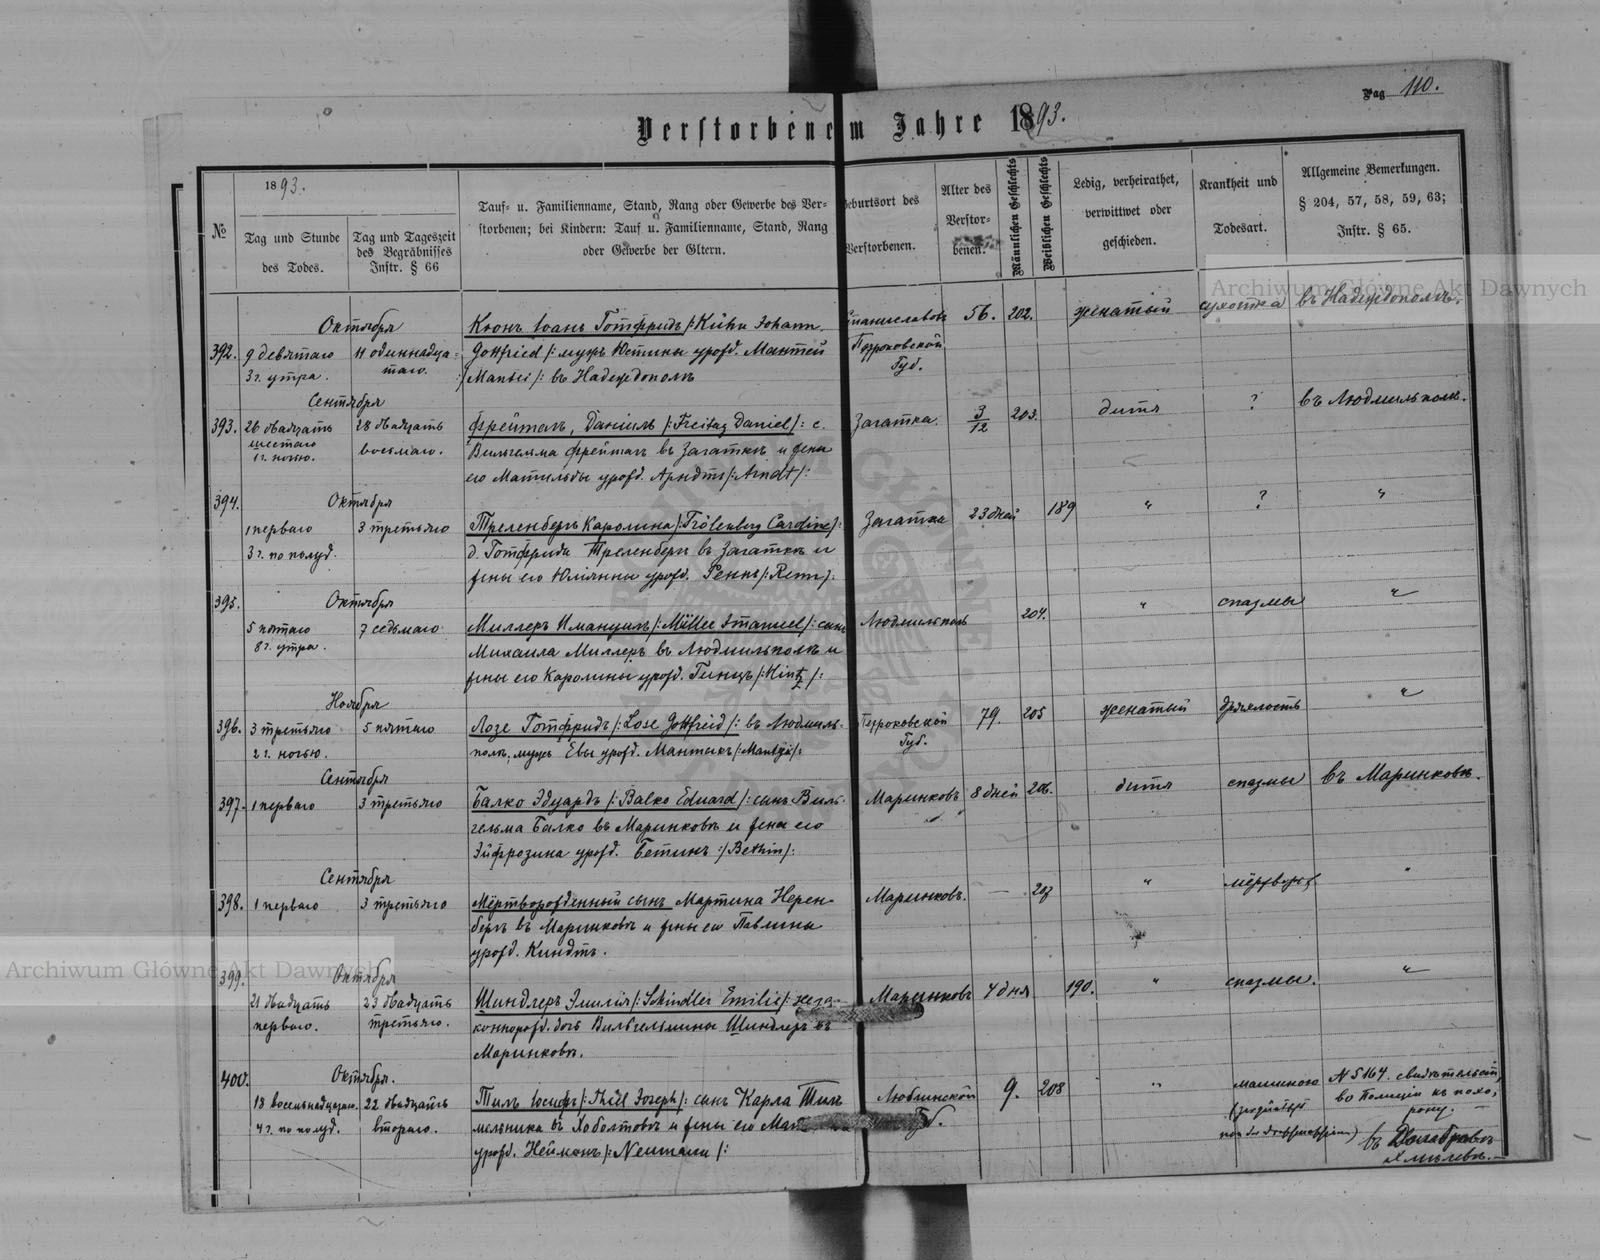 Pag 110.
Verstorbenen im Jahre 1893.
№
1893.
Tag und Stunde
des Todes.
Tag und Tageszeit
des Begräbnisses
Instr. § 66
Tauf- u. Familienname, Stand, Rang oder Gewerbe des Ver-
storbenen; bei Kindern: Tauf u. Familienname, Stand, Rang
oder Gewerbe der Eltern.
Geburtsort des
Verstorbenen.
Alter des
Verstor-
benen.
Männlichen Geschlechts
Weiblichen Geschlechts
Ledig, verheirathet,
verwittwet oder
geschieden.
Krankheit und
Todesart.
Allgemeine Bemerkungen.
§ 204, 57, 58, 59, 63;
Instr. § 65.
Archiwum Główne Akt Dawnych
392.
Октября
9 девятаго
3 г. утра.
11 одиннадца-
таго.
Кюнъ Іоанъ Готфридъ /: Kühn Johann
Gottfried /: мужъ Юстины урожд. Мантей
/: Mantei /: въ Надеждополѣ
Петроковской
Губ.
56.
202.
женатый
сухотка
въ Надеждополѣ.
393.
Сентября
26 двадцать
шестаго
1 г. ночью.
28 двадцать
восьмаго.
Фрейтагъ, Даніилъ /: Freitag Daniel /: с.
Вильгелма Фрейтагъ въ Загаткѣ и жены
его Матильды урожд. Арндтъ /: Arndt /:
Загатка.
3/12
203.
дитя
?
въ Людмильполѣ.
394.
Октября
1 перваго
3 г. по полуд.
3 третьяго
Треленбергъ Каролина /: Trölenberg Caroline /:
д. Готфрида Треленбергъ въ Загаткѣ и
жены его Юліянны урожд. Реннъ /: Renn /:
Загатка
23 дней
189
"
?
"
395.
Октября
5 пятаго
8 г. утра.
7 седьмаго
Миллеръ Имануилъ /: Müller Imanuel /: сынъ
Михаила Миллеръ въ Людмильполѣ и
жены его Каролины урожд. Гинцъ /: Hintz /:
Людмильполь
204.
"
спазмы
"
396.
Ноября
3 третьяго
2 г. ночью.
5 пятаго
Лозе Готфридъ /: Lose Gottfried /: въ Людмиль-
полѣ, мужъ Евы урожд.
Петроковской
Губ.
79.
205
женатый
дряхлость
"
397.
Сентября
1 перваго
3 третьяго
Балко Эдуардъ /: Balko Eduard /: сынъ Виль-
гельма Балко въ Маринковѣ и жены его
Эйфрозина урожд. Бетинъ :/ Bethin /:
Маринковъ
8 дней
206.
дитя
спазмы
въ Маринковѣ.
398.
Сентября
1 перваго
3 третьяго
Мёртворожденный сынъ Мартина Нерен-
бергъ въ Маринковѣ и жены его Павлины
урожд. Киндтъ.
Маринковъ.
—
207
"
"
Archiwum Główne Akt Dawnych
399.
Октября
21 двадцать
перваго.
23 двадцать
третьяго.
Шиндлеръ Эмилія /: Schindler Emilie /: неза-
коннорожд. дочь Вильгельмины Шиндлеръ въ
Маринковѣ.
Маринковъ
4 дня
190.
"
спазмы.
"
400.
Октября.
18 восемнадцатаго.
4 г. по полуд.
22 двадцать
втораго.
Тиль Іосифъ /: Thiel Joseph /: сынъ Карла Тиль
мельника въ Хоболтовѣ и жены его
урожд. Нейманъ /: Neumann /:
Люблинской
Губ.
9.
208
"
№ 5164. свидѣтельст.
во Полиціи къ похо-
рону.
въ